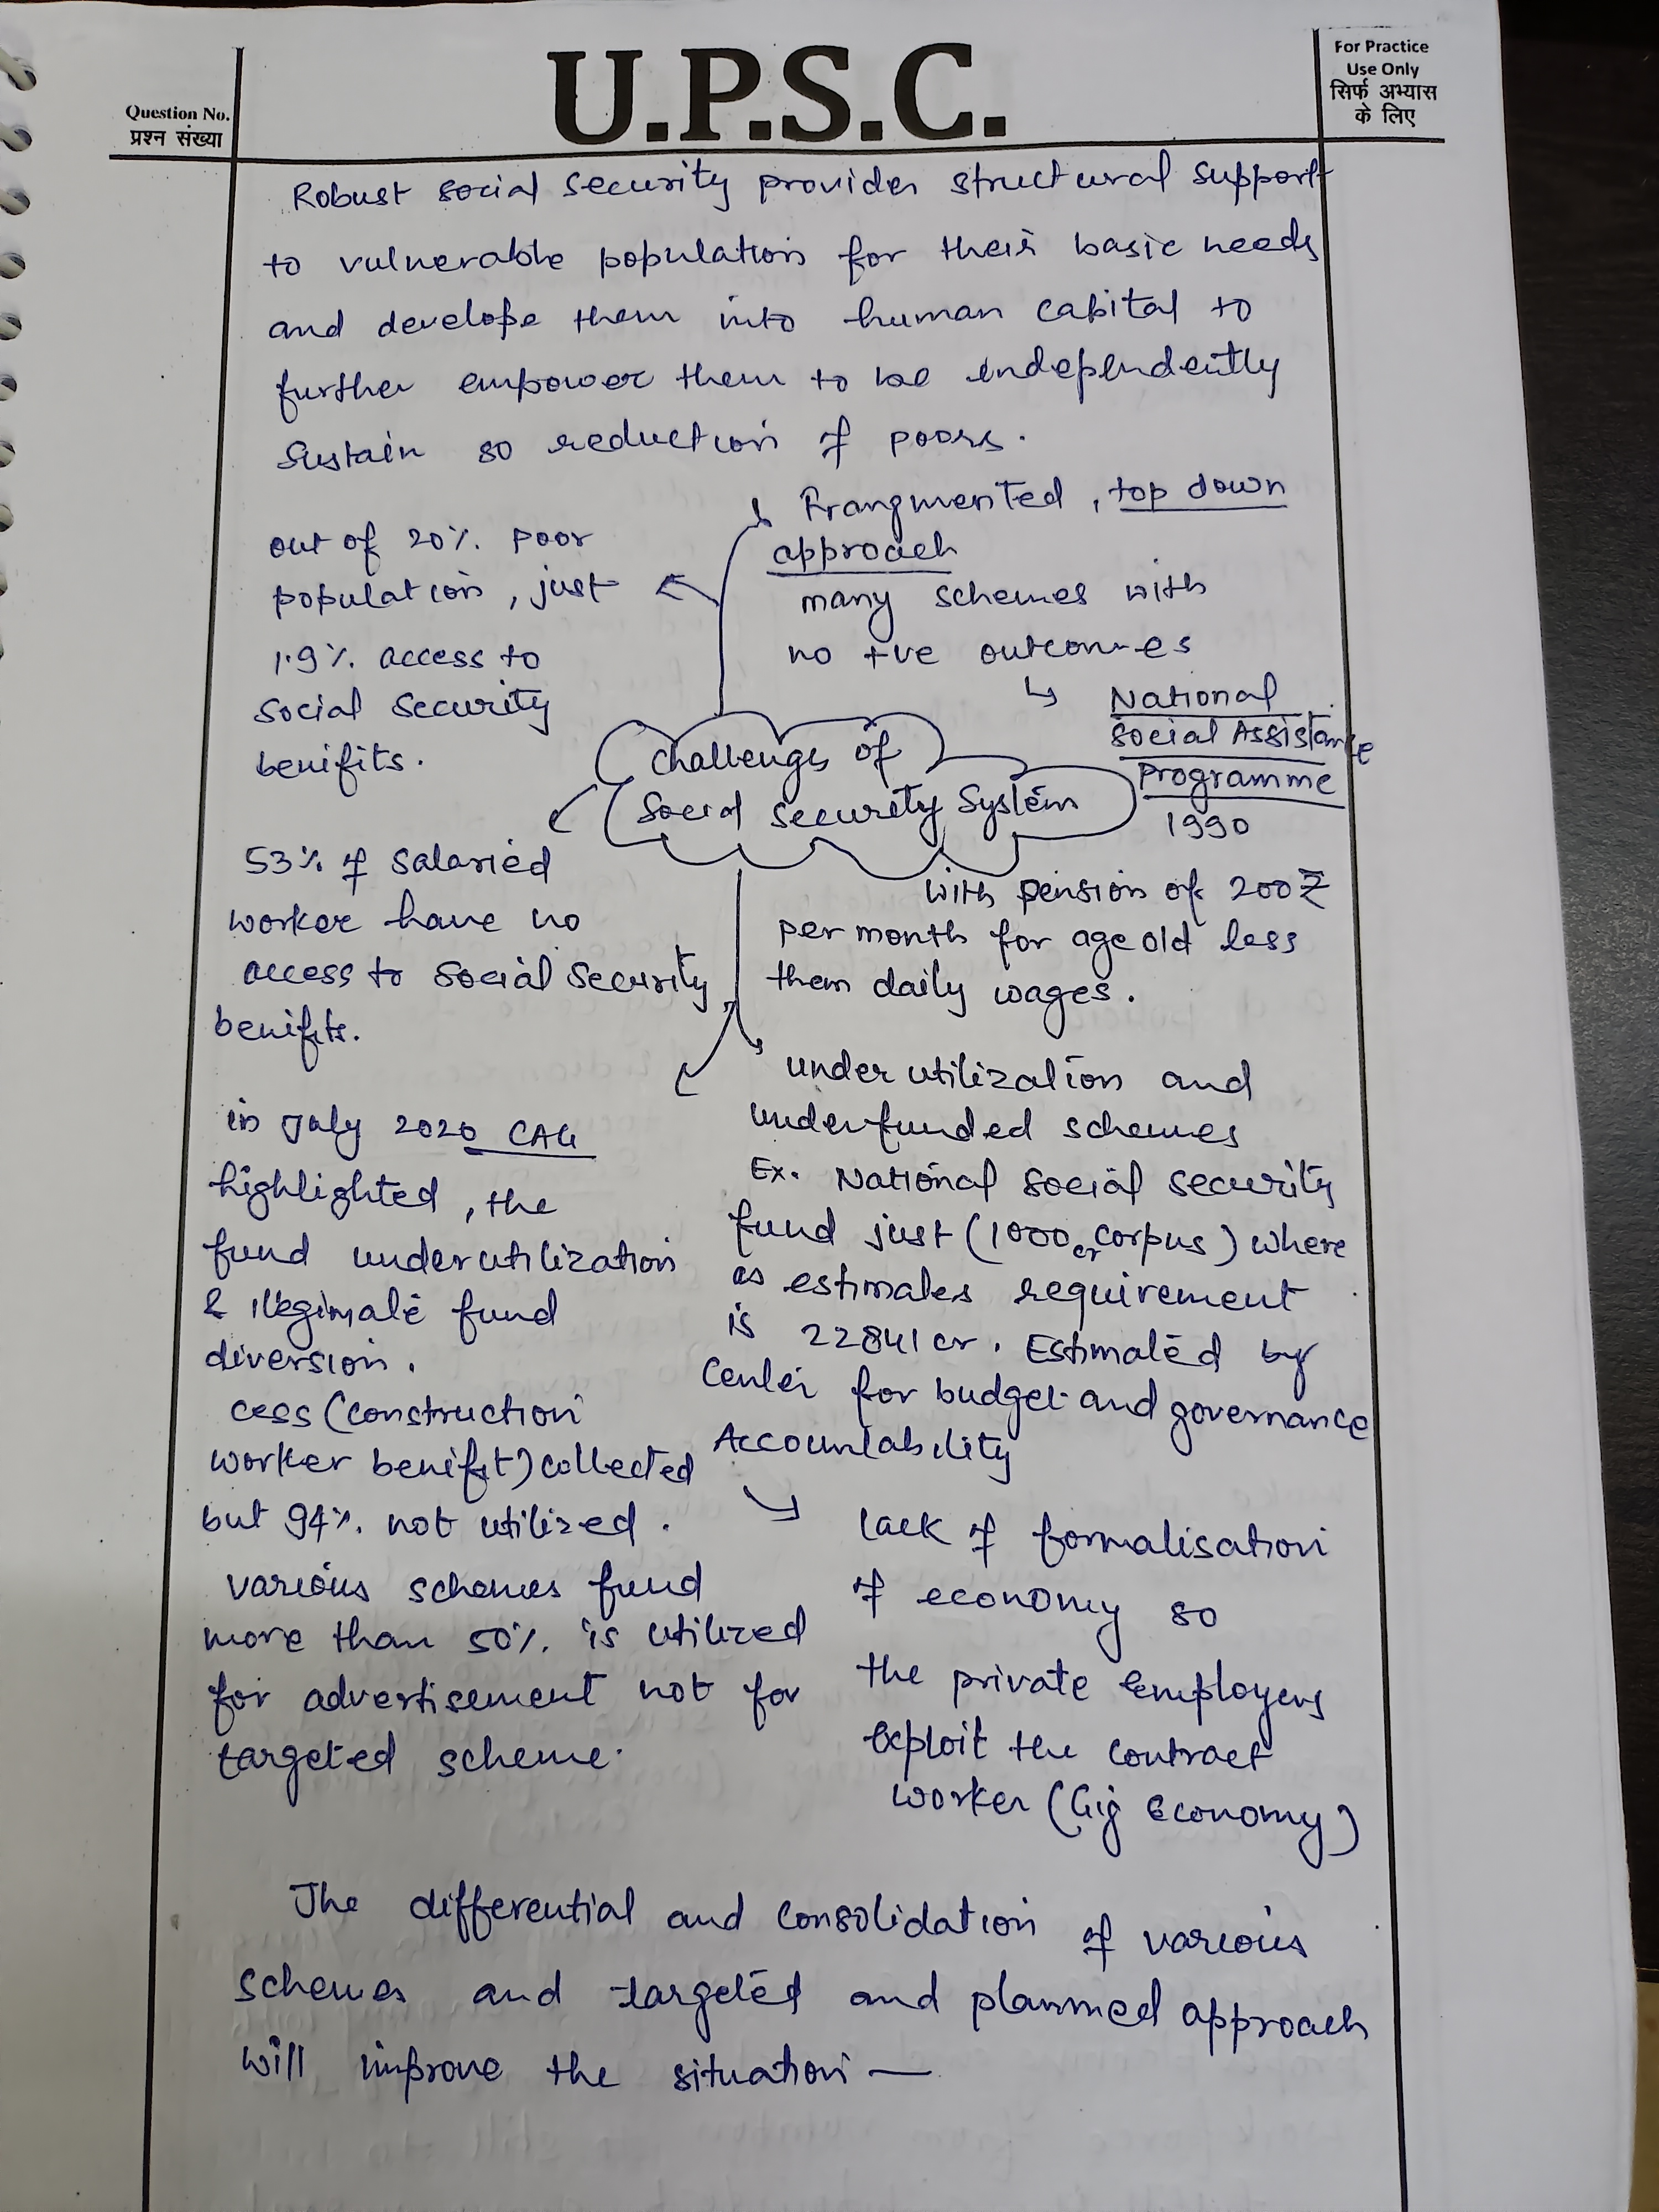 Question No.
प्रश्न संख्या
U.P.S.C.
For Practice
Use Only
सिर्फ अभ्यास
के लिए
Robust social security provides structural support
to vulnerable population for their basic needs
and develope them into human capital to
further empower them to be independently
Sustain so reduction of poors.
Frangmented, top down
approach
many schemes with
no +ve outcomes
National
Social Assistance
Programme
1990
with pension of 200₹
per month for age old less
them daily wages.
out of 20% poor
population, just
1.9% access to
social security
benifits.
Challenges of
Social Security System
53% of salaried
worker have no
access to social security
benifits.
in July 2020 CAG
highlighted, the
fund underutilization
& illegimate fund
diversion.
cess (construction
worker benifit) collected
but 94% not utilized.
various schemes fund
more than 50% is utilized
for advertisement not for
targeted scheme.
under utilization and
underfunded schemes
Ex. National social security
fund just (1000 cr corpus) where
as estimates requirement
is 22841 cr. Estimated by
Center for budget and governance
Accountability
lack of formalisation
of economy so
the private employers
exploit the contract
worker (Gig Economy)
The differential and consolidation of various
schemes and targeted and planned approach
will improve the situation —